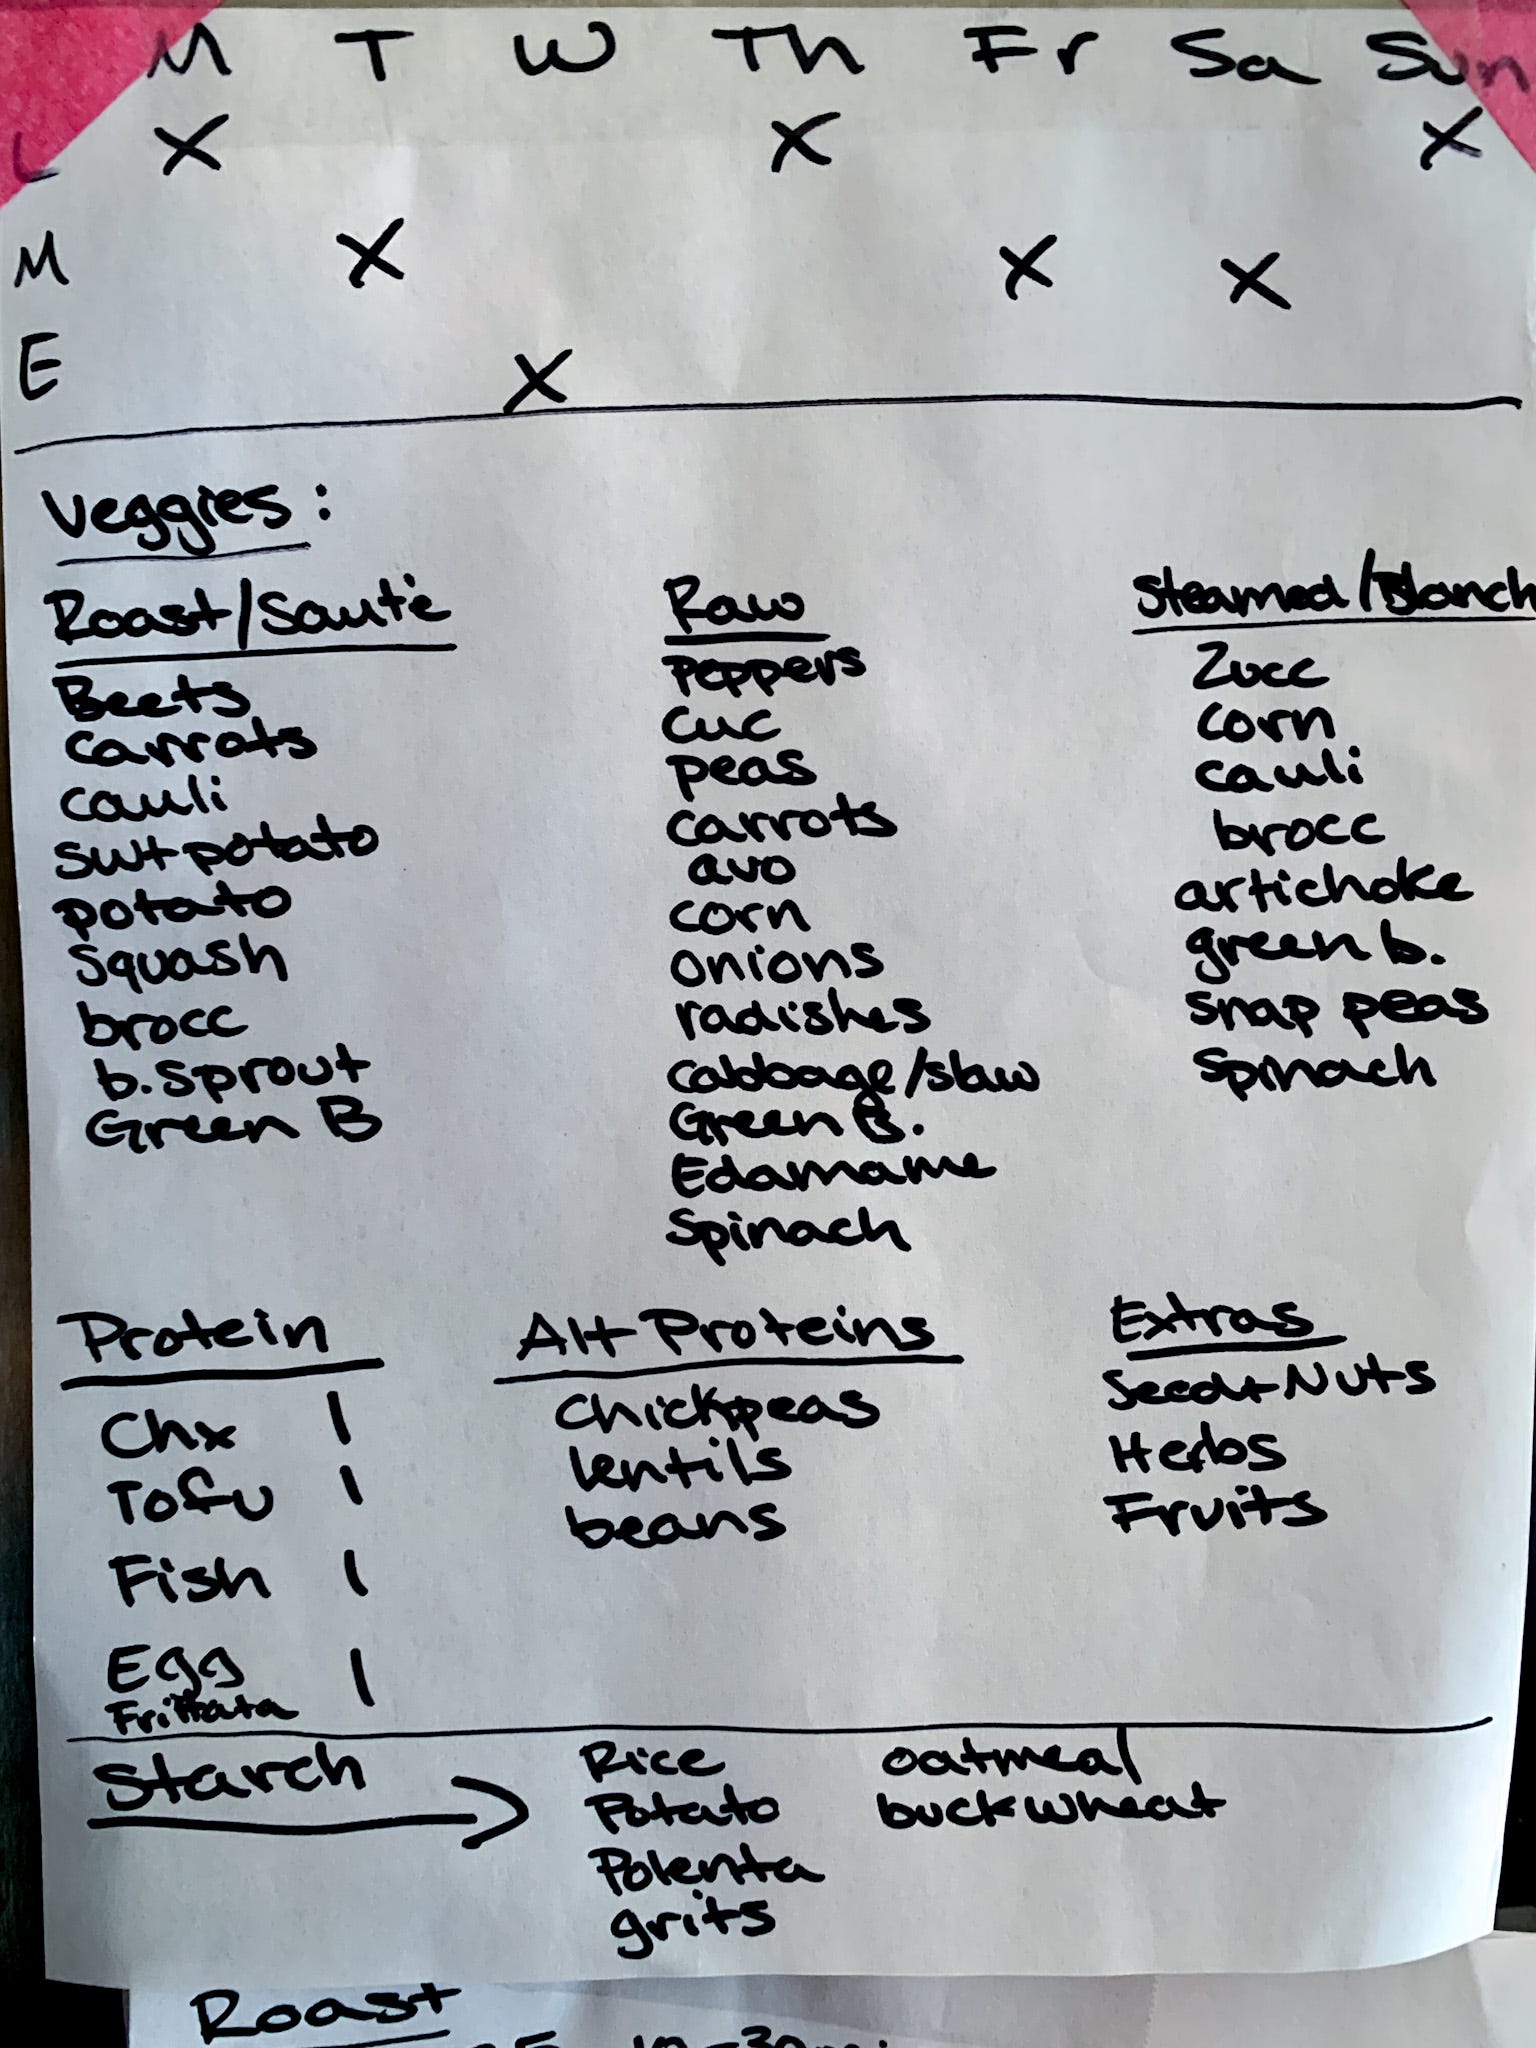 M T W Th Fr Sa Sun
L X X X
M X X X
E X
Veggies:
Roast/Sauté
Beets
carrots
cauli
swt potato
potato
squash
brocc
b. sprout
Green B
Raw
Peppers
cuc
peas
carrots
avo
corn
onions
radishes
cabbage/slaw
Green B.
Edamame
Spinach
Steamed/Blanch
Zucc
corn
cauli
brocc
artichoke
green b.
snap peas
Spinach
Protein
Chx 1
Tofu 1
Fish 1
Egg 1
Frittata
Alt Proteins
Chickpeas
lentils
beans
Extras
Seed+Nuts
Herbs
Fruits
Starch
Rice
Potato
Polenta
grits
oatmeal
buckwheat
Roast